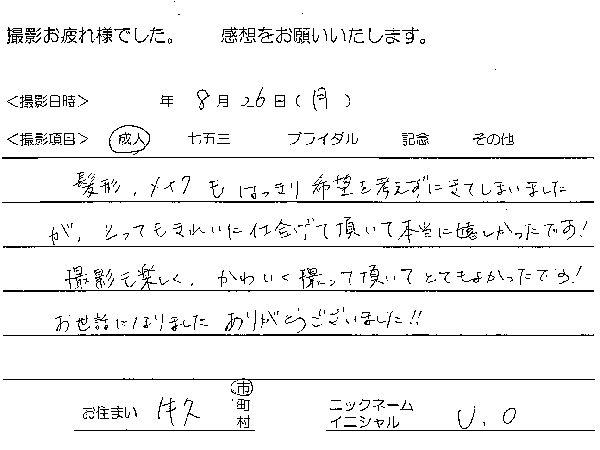 撮影お疲れ様でした。 感想をお願いいたします。
＜撮影日時＞ 年 8月 26日(月)
＜撮影項目＞ 成人 七五三 ブライダル 記念 その他
髪形、メイクも はっきり 希望を考えずにきてしまいました
が、とってもきれいに仕上げて頂いて本当に嬉しかったです!
撮影も楽しく、かわいく撮って頂いてとてもよかったです!
お世話になりました ありがとうございました!!
お住まい 牛久 市町村 ニックネーム イニシャル U.O